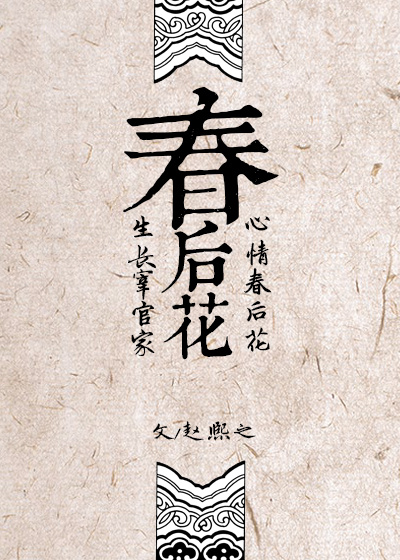 春后花
心情春后花
生长宰官家
文/赵熙之